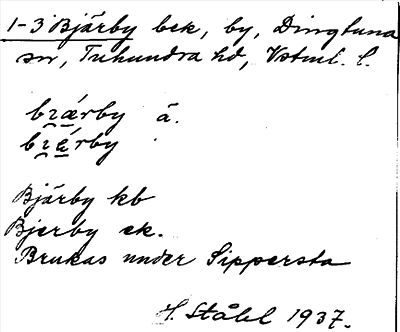 1-3 Bjärby bek, by, Dingtuna
sn, Tuhundra hd, Vstml. l.
bɪærby å.
bɪǽrby
Bjärby kb
Bjerby ek.
Brukas under Sippersta
H. Ståhl 1937.